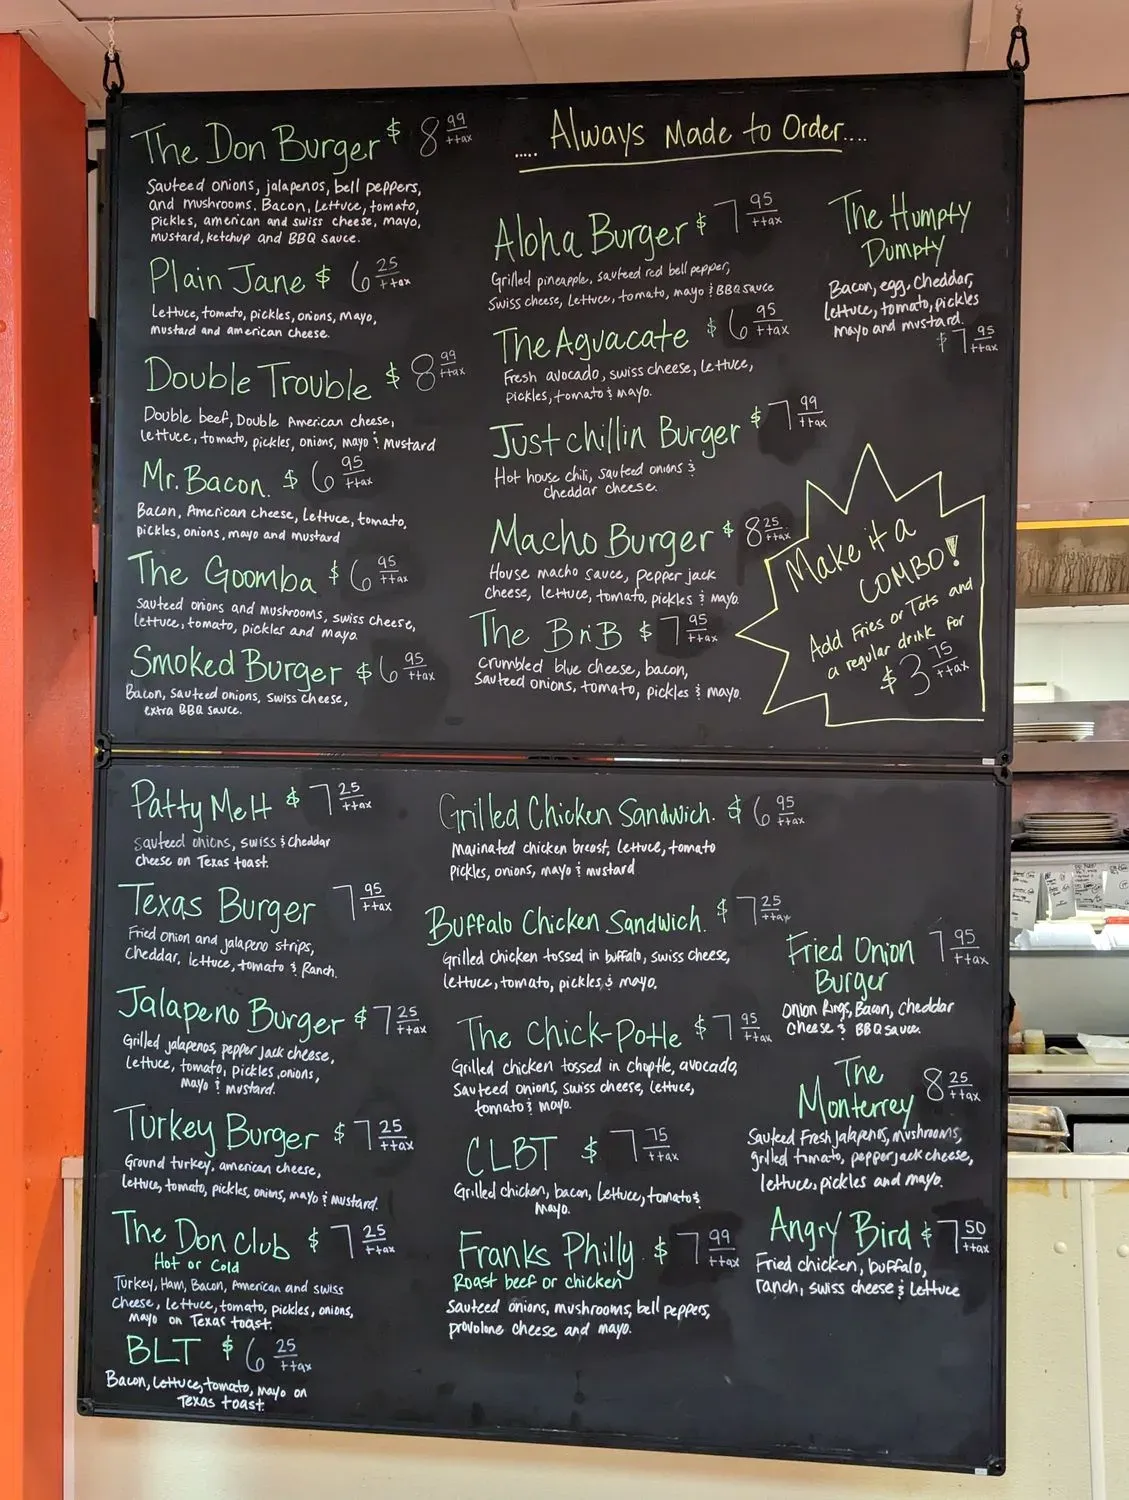 The Don Burger $ 8 99 ++ax
Sauteed onions, jalapenos, bell peppers,
and mushrooms. Bacon, Lettuce, tomato,
pickles, american and swiss cheese, mayo,
mustard, ketchup and BBQ sauce.
Plain Jane $ 6 25 ++ax
Lettuce, tomato, pickles, onions, mayo,
mustard and american cheese.
Double Trouble $ 8 99 ++ax
Double beef, Double American cheese,
Lettuce, tomato, pickles, onions, mayo & Mustard
Mr. Bacon. $ 6 95 ++ax
Bacon, American cheese, Lettuce, tomato,
pickles, onions, mayo and mustard
The Goomba $ 6 95 ++ax
Sauteed onions and mushrooms, swiss cheese,
lettuce, tomato, pickles and mayo.
Smoked Burger $ 6 95 ++ax
Bacon, sauteed onions, swiss cheese,
extra BBQ sauce.
..... Always Made to Order....
Aloha Burger $ 7 95 ++ax
Grilled pineapple, sauteed red bell pepper,
Swiss cheese, Lettuce, tomato, mayo & BBQ sauce
The Aguacate $ 6 95 ++ax
Fresh avocado, swiss cheese, Lettuce,
pickles, tomato & mayo.
Just chillin Burger $ 7 99 ++ax
Hot house chili, sauteed onions &
cheddar cheese.
Macho Burger $ 8 25 ++ax
House macho sauce, pepper jack
cheese, lettuce, tomato, pickles & mayo.
The BnB $ 7 95 ++ax
Crumbled blue cheese, bacon,
Sauteed onions, tomato, pickles & mayo.
The Humpty
Dumpty
Bacon, egg, cheddar,
lettuce, tomato, pickles
mayo and mustard.
$ 7 95 ++ax
Make it a
COMBO!
Add Fries or Tots and
a regular drink for
$ 3 75 ++ax
Patty Melt $ 7 25 ++ax
Sauteed onions, swiss & cheddar
cheese on Texas toast.
Texas Burger 7 95 ++ax
Fried onion and jalapeno strips,
Cheddar, lettuce, tomato & Ranch.
Jalapeno Burger $ 7 25 ++ax
Grilled jalapenos, pepper jack cheese,
Lettuce, tomato, pickles, onions,
mayo & mustard.
Turkey Burger $ 7 25 ++ax
Ground turkey, american cheese,
Lettuce, tomato, pickles, onions, mayo & mustard.
The Don Club $ 7 25 ++ax
Hot or Cold
Turkey, Ham, Bacon, American and swiss
Cheese, Lettuce, tomato, pickles, onions,
mayo on Texas toast.
BLT $ 6 25 ++ax
Bacon, Lettuce, tomato, mayo on
Texas toast.
Grilled Chicken Sandwich. $ 6 95 ++ax
Marinated chicken breast, lettuce, tomato
pickles, onions, mayo & mustard
Buffalo Chicken Sandwich. $ 7 25 ++ax
Grilled chicken tossed in buffalo, swiss cheese,
lettuce, tomato, pickles & mayo.
The Chick-Potle $ 7 95 ++ax
Grilled chicken tossed in choptle, avocado,
Sauteed onions, swiss cheese, lettuce,
tomato & mayo.
CLBT $ 7 75 ++ax
Grilled chicken, bacon, Lettuce, tomato &
Mayo.
Franks Philly. $ 7 99 ++ax
Roast beef or chicken
Sauteed onions, mushrooms, bell peppers,
provolone cheese and mayo.
Fried Onion 7 95 ++ax
Burger
Onion Rings, Bacon, cheddar
Cheese & BBQ sauce.
The
Monterrey 8 25 ++ax
Sauteed Fresh jalapenos, mushrooms,
grilled tomato, pepper jack cheese,
lettuce, pickles and mayo.
Angry Bird $ 7 50 ++ax
Fried chicken, buffalo,
ranch, swiss cheese & Lettuce